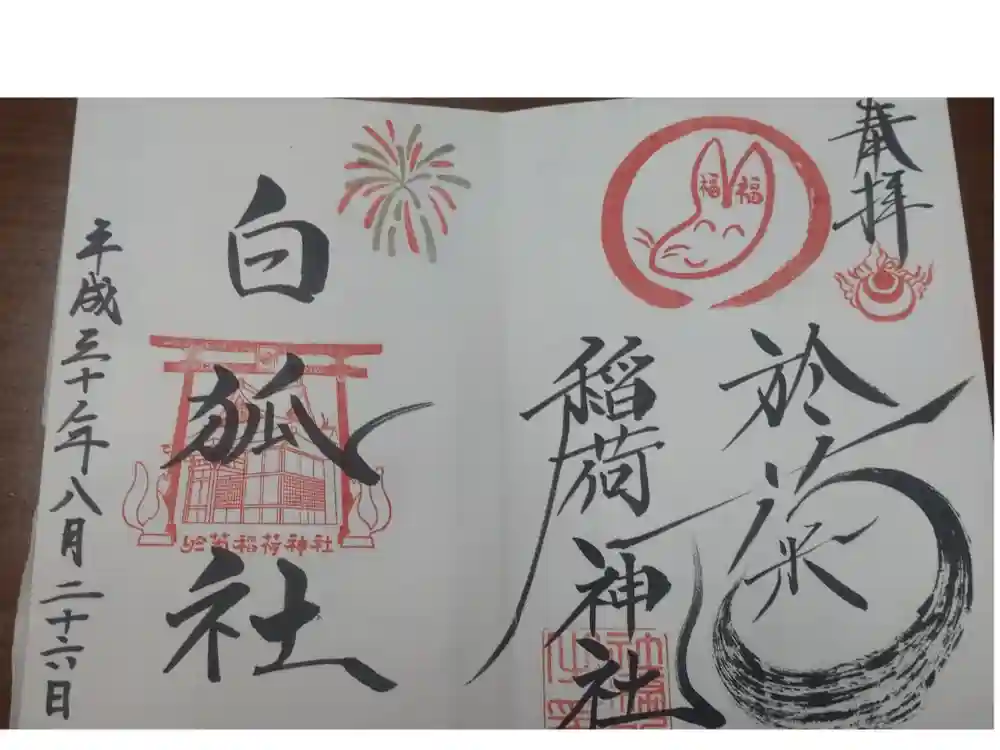 奉拝
福 福
於菊
稲荷神社
白狐社
於菊稲荷神社
平成三十年八月二十六日